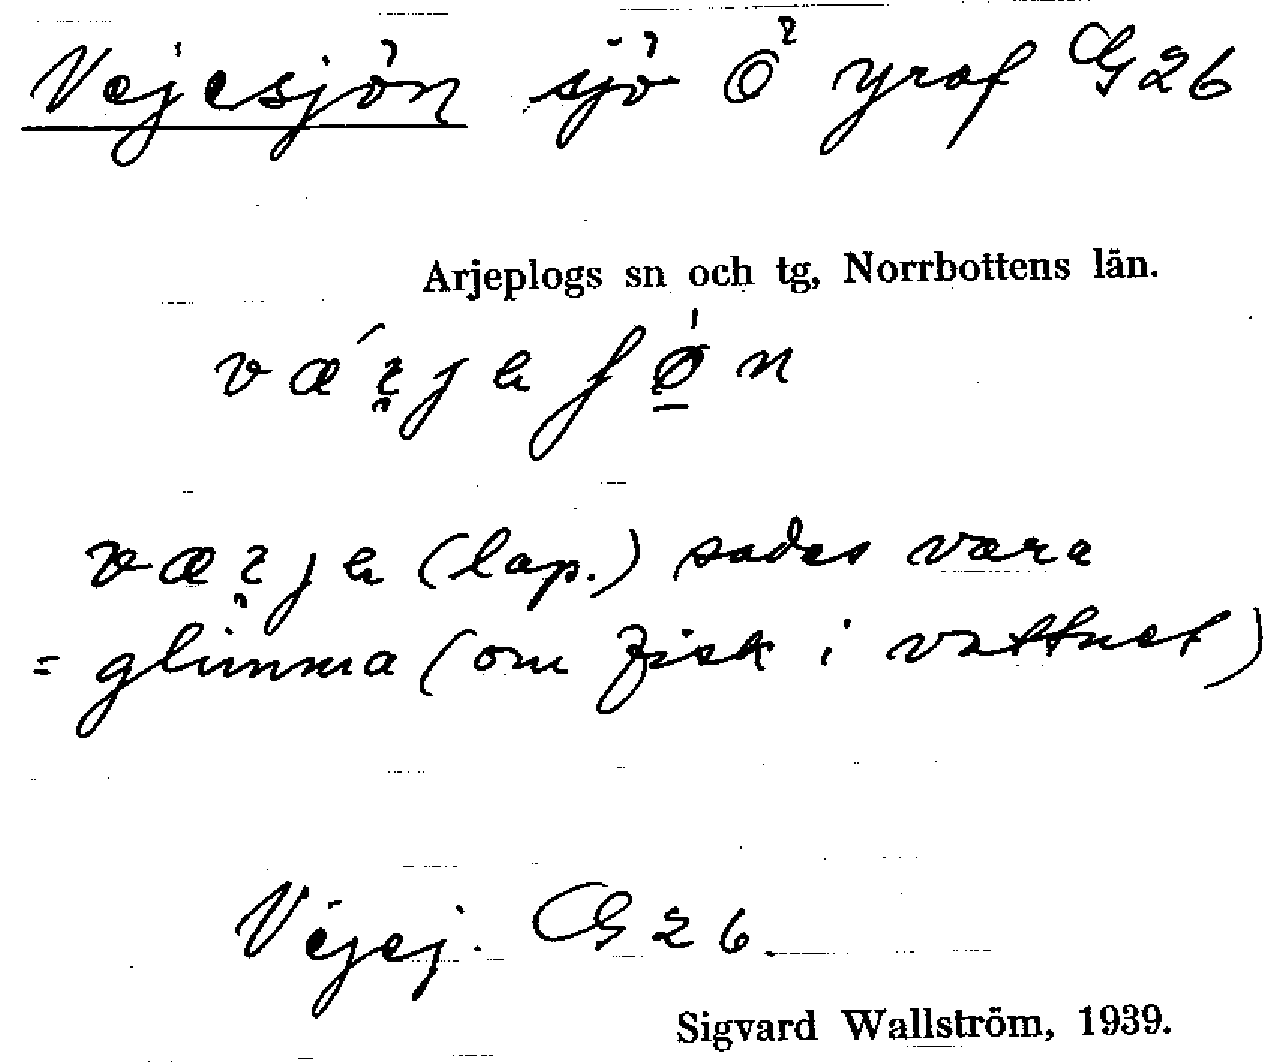 Vejesjön sjö Ö yraf G26
Arjeplogs sn och tg, Norrbottens län.
(lap.) sades vara
= glimma (om fisk i vattnet)
Vejej. G26.
Sigvard Wallström, 1939.